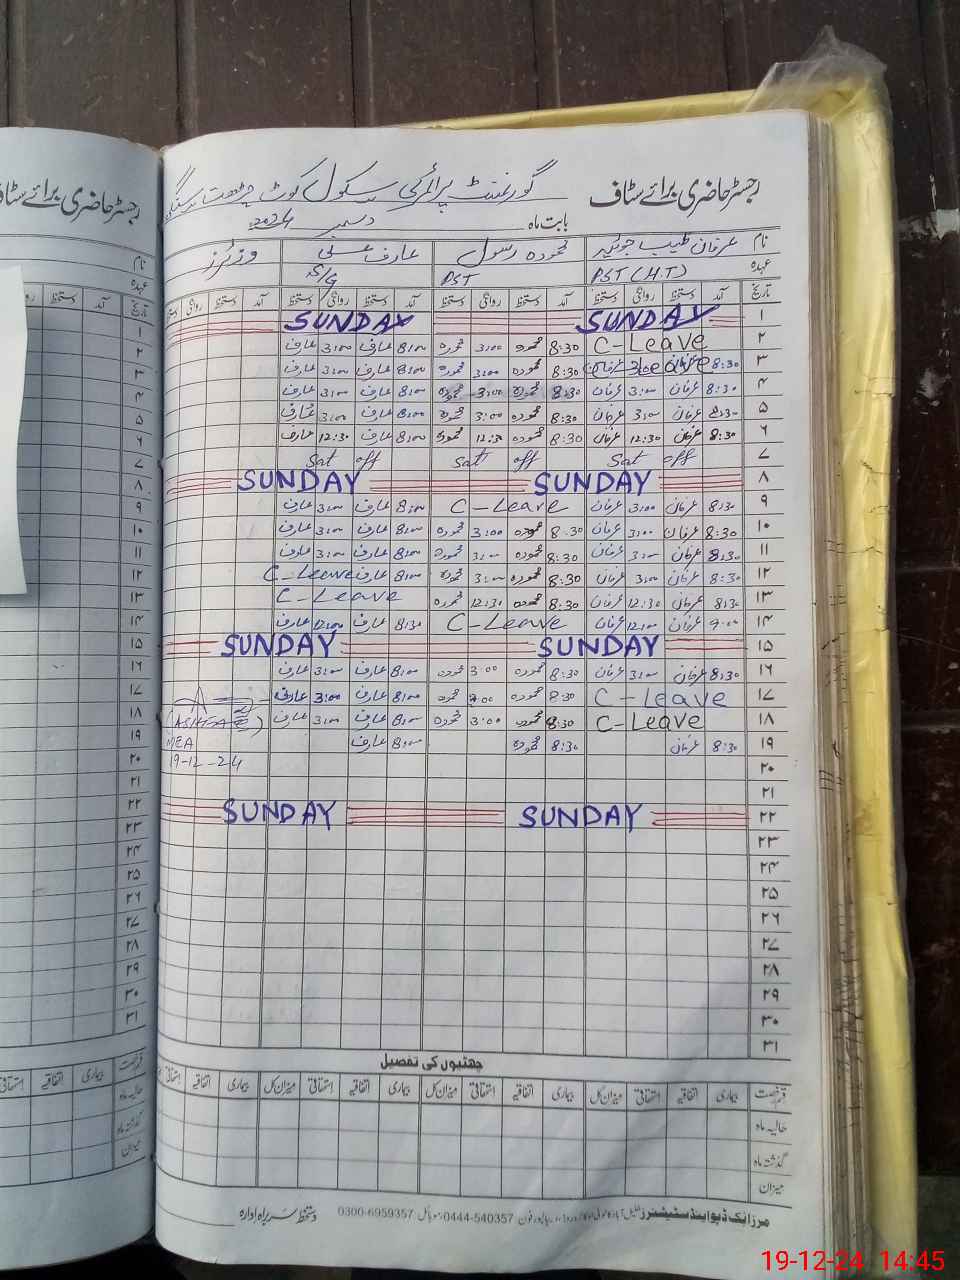 رجسٹر حاضری برائے سٹاف گورنمنٹ پرائمری سکول کوٹ
بابت ماہ دسمبر 2024
نام عرفان طیب محمودہ رسول عارف علی وزیٹرز
عہدہ PST (H.T) PST S/G
تاریخ آمد دستخط روانگی دستخط آمد دستخط روانگی دستخط آمد دستخط روانگی دستخط آمد دستخط روانگی دستخط
۱ SUNDAY SUNDAY
۲ C-Leave 8:30 محمودہ 3:00 محمودہ 8:00 عارف 3:00 عارف
۳ 8:30 عرفان C-Leave 8:30 محمودہ 3:00 محمودہ 8:00 عارف 3:00 عارف
۴ 8:30 عرفان 3:00 عرفان 8:30 محمودہ 3:00 محمودہ 8:00 عارف 3:00 عارف
۵ 8:30 عرفان 3:00 عرفان 8:30 محمودہ 3:00 محمودہ 8:00 عارف 3:00 عارف
۶ 8:30 عرفان 12:30 عرفان 8:30 محمودہ 12:30 محمودہ 8:00 عارف 12:30 عارف
۷ Sat off Sat off Sat off
۸ SUNDAY SUNDAY
۹ 8:30 عرفان 3:00 عرفان C-Leave 8:00 عارف 3:00 عارف
۱۰ 8:30 عرفان 3:00 عرفان 8:30 محمودہ 3:00 محمودہ 8:00 عارف 3:00 عارف
۱۱ 8:30 عرفان 3:00 عرفان 8:30 محمودہ 3:00 محمودہ 8:00 عارف 3:00 عارف
۱۲ 8:30 عرفان 3:00 عرفان 8:30 محمودہ 3:00 محمودہ 8:00 عارف C-Leave
۱۳ 8:30 عرفان 12:30 عرفان 8:30 محمودہ 12:30 محمودہ C-Leave
۱۴ 9:00 عرفان 12:00 عرفان C-Leave 8:30 عارف 12:00 عارف
۱۵ SUNDAY SUNDAY
۱۶ 8:30 عرفان 3:00 عرفان 8:30 محمودہ 3:00 محمودہ 8:00 عارف 3:00 عارف
۱۷ C-Leave 8:30 محمودہ 3:00 محمودہ 8:00 عارف 3:00 عارف
۱۸ C-Leave 8:30 محمودہ 3:00 محمودہ 8:00 عارف 3:00 عارف
۱۹ 8:30 عرفان 8:30 محمودہ 8:00 عارف MEA
۲۰ 19-12-24
۲۱
۲۲ SUNDAY SUNDAY
۲۳
۲۴
۲۵
۲۶
۲۷
۲۸
۲۹
۳۰
۳۱
چھٹیوں کی تفصیل
قسم رخصت بیماری اتفاقیہ استحقاقی میزان کل بیماری اتفاقیہ استحقاقی میزان کل بیماری اتفاقیہ استحقاقی میزان کل بیماری اتفاقیہ
حالیہ ماہ
گذشتہ ماہ
میزان
مرزا بک ڈپو اینڈ سٹیشنرز فون 0444-540357 موبائل 0300-6959357 دستخط سربراہ ادارہ
رجسٹر حاضری برائے سٹاف
نام
عہدہ
تاریخ آمد
۱
۲
۳
۴
۵
۶
۷
۸
۹
۱۰
۱۱
۱۲
۱۳
۱۴
۱۵
۱۶
۱۷
۱۸
۱۹
۲۰
۲۱
۲۲
۲۳
۲۴
۲۵
۲۶
۲۷
۲۸
۲۹
۳۰
۳۱
قسم رخصت بیماری اتفاقیہ
حالیہ ماہ
گذشتہ ماہ
میزان
19-12-24 14:45